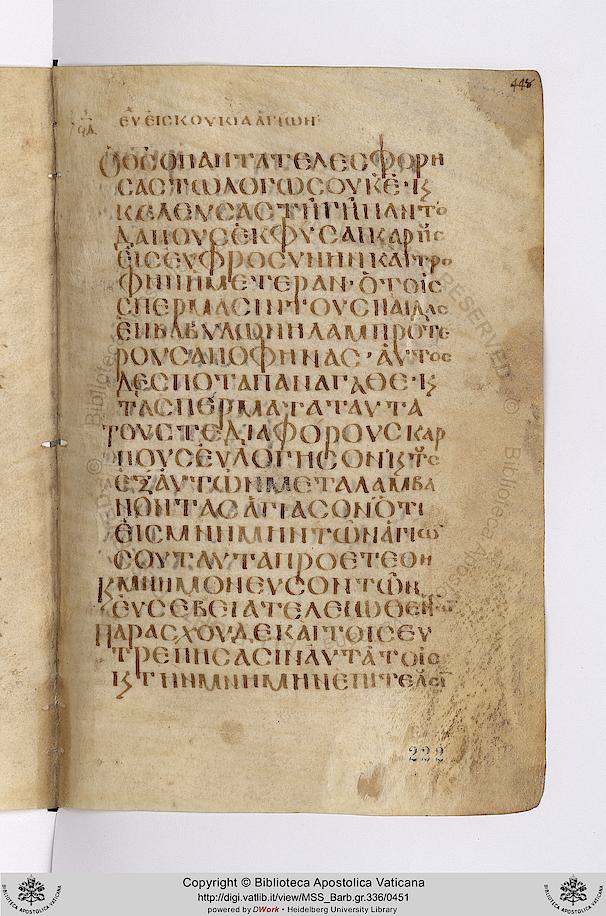 448
ΕΥ ΕΙΣ ΚΟΥΚΙΑ ΑΓΙΩΝ
Ὁ ΘΣ Ὁ ΠΑΝΤΑ ΤΕΛΕΣΦΟΡΗ
ΣΑΣ ΤΩ ΛΟΓΩ ΣΟΥ ΚΕ · Ϗ
ΚΕΛΕΥΣΑΣ ΤΗ ΓΗ ΠΑΝΤΟ
ΔΑΠΟΥΣ ΕΚΦΥΣΑΙ ΚΑΡΠΟΥΣ
ΕΙΣ ΕΥΦΡΟΣΥΝΗΝ ΚΑΙ ΤΡΟ
ΦΗΝ ΗΜΕΤΕΡΑΝ · Ὁ ΤΟΙΣ
ΣΠΕΡΜΑΣΙΝ ΤΟΥΣ ΠΑΙΔΑΣ
ΕΝ ΒΑΒΥΛΩΝΗ ΛΑΜΠΡΟΤΕ
ΡΟΥΣ ΑΠΟΦΗΝΑΣ · ΑΥΤΟΣ
ΔΕΣΠΟΤΑ ΠΑΝΑΓΑΘΕ · Ϗ
ΤΑ ΣΠΕΡΜΑΤΑ ΤΑΥΤΑ
ΤΟΥΣ ΤΕ ΔΙΑΦΟΡΟΥΣ ΚΑΡ
ΠΟΥΣ ΕΥΛΟΓΗΣΟΝ Ϗ ΤΟΥΣ
ΕΞ ΑΥΤΩΝ ΜΕΤΑΛΑΜΒΑ
ΝΟΝΤΑΣ ΑΓΙΑΣΟΝ · ΟΤΙ
ΕΙΣ ΜΝΗΜΗΝ ΤΩΝ ΑΓΙΩΝ
ΣΟΥ ΤΑΥΤΑ ΠΡΟΕΤΕΘΗ
Ϗ ΜΝΗΜΟΝΕΥΣΟΝ ΤΩΝ
ΕΥΣΕΒΕΙΑ ΤΕΛΕΙΩΘΕΝ
ΠΑΡΑΣΧΟΥ ΔΕ ΚΑΙ ΤΟΙΣ ΕΥ
ΤΡΕΠΗΣΑΣΙΝ ΑΥΤΑ ΤΟΙΣ
Ϗ ΤΗΝ ΜΝΗΜΗΝ ΕΠΙΤΕΛΕΙ
222
Copyright © Biblioteca Apostolica Vaticana
http://digi.vatlib.it/view/MSS_Barb.gr.336/0451
powered by DWork • Heidelberg University Library